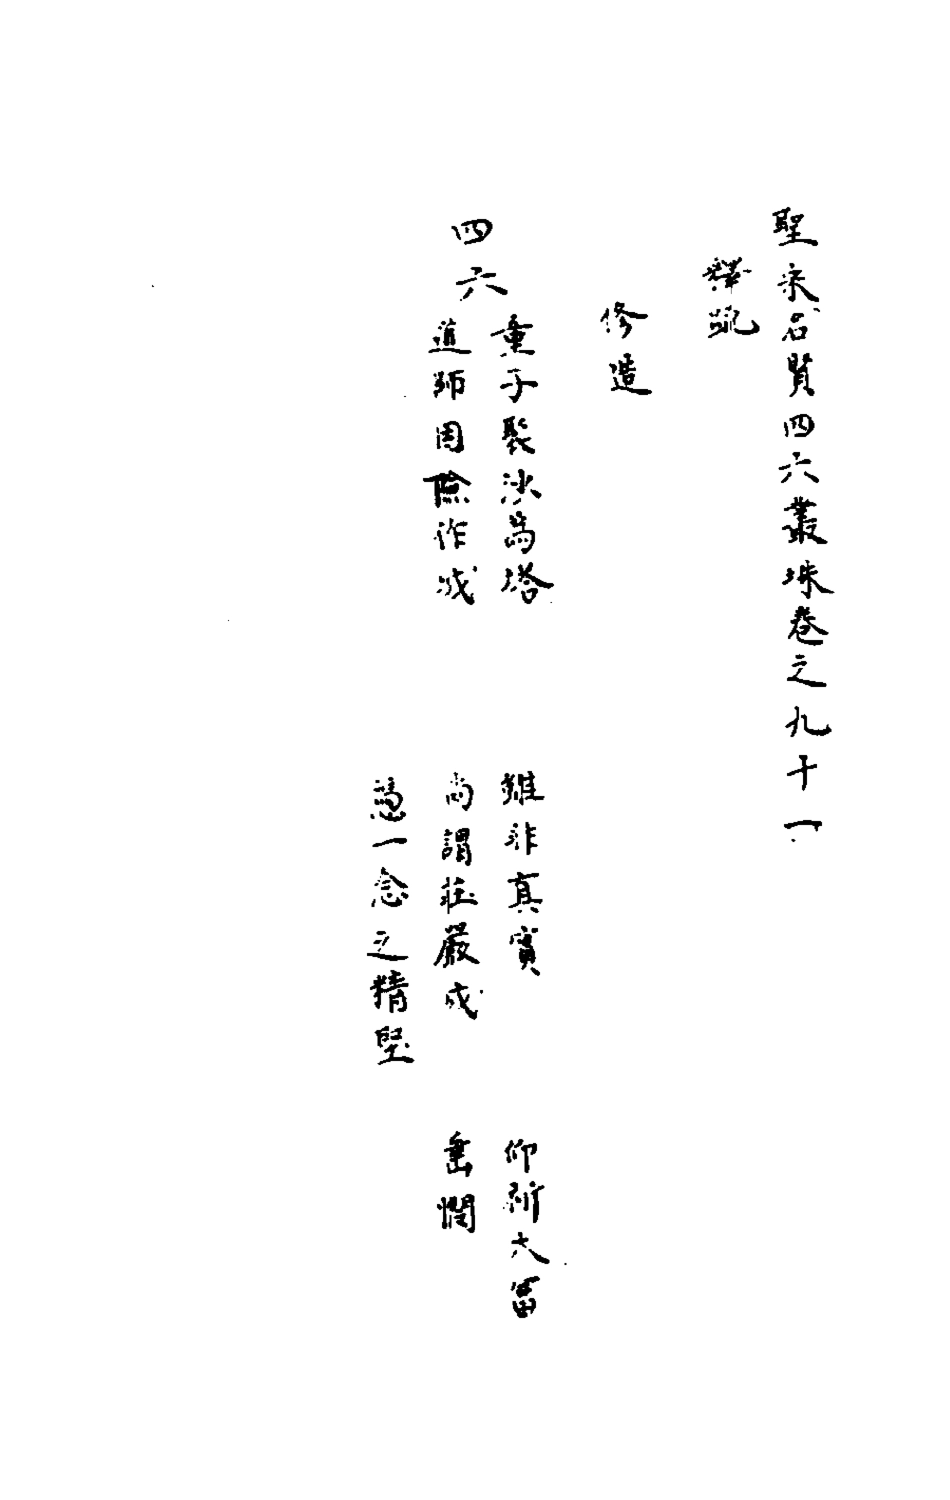 聖宋名賢四六叢珠卷之九十一
釋疏
修造
四六
童子聚沙為塔
道師因險作城
雖非真實
尚謂莊嚴成
憑一念之精堅
仰祈大富
垂憫